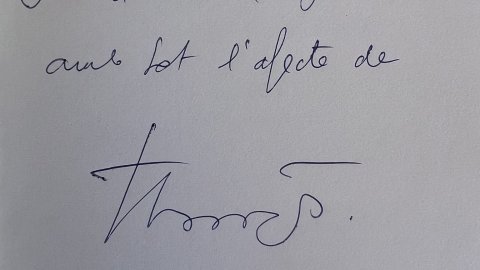 amb tot l'afecte de